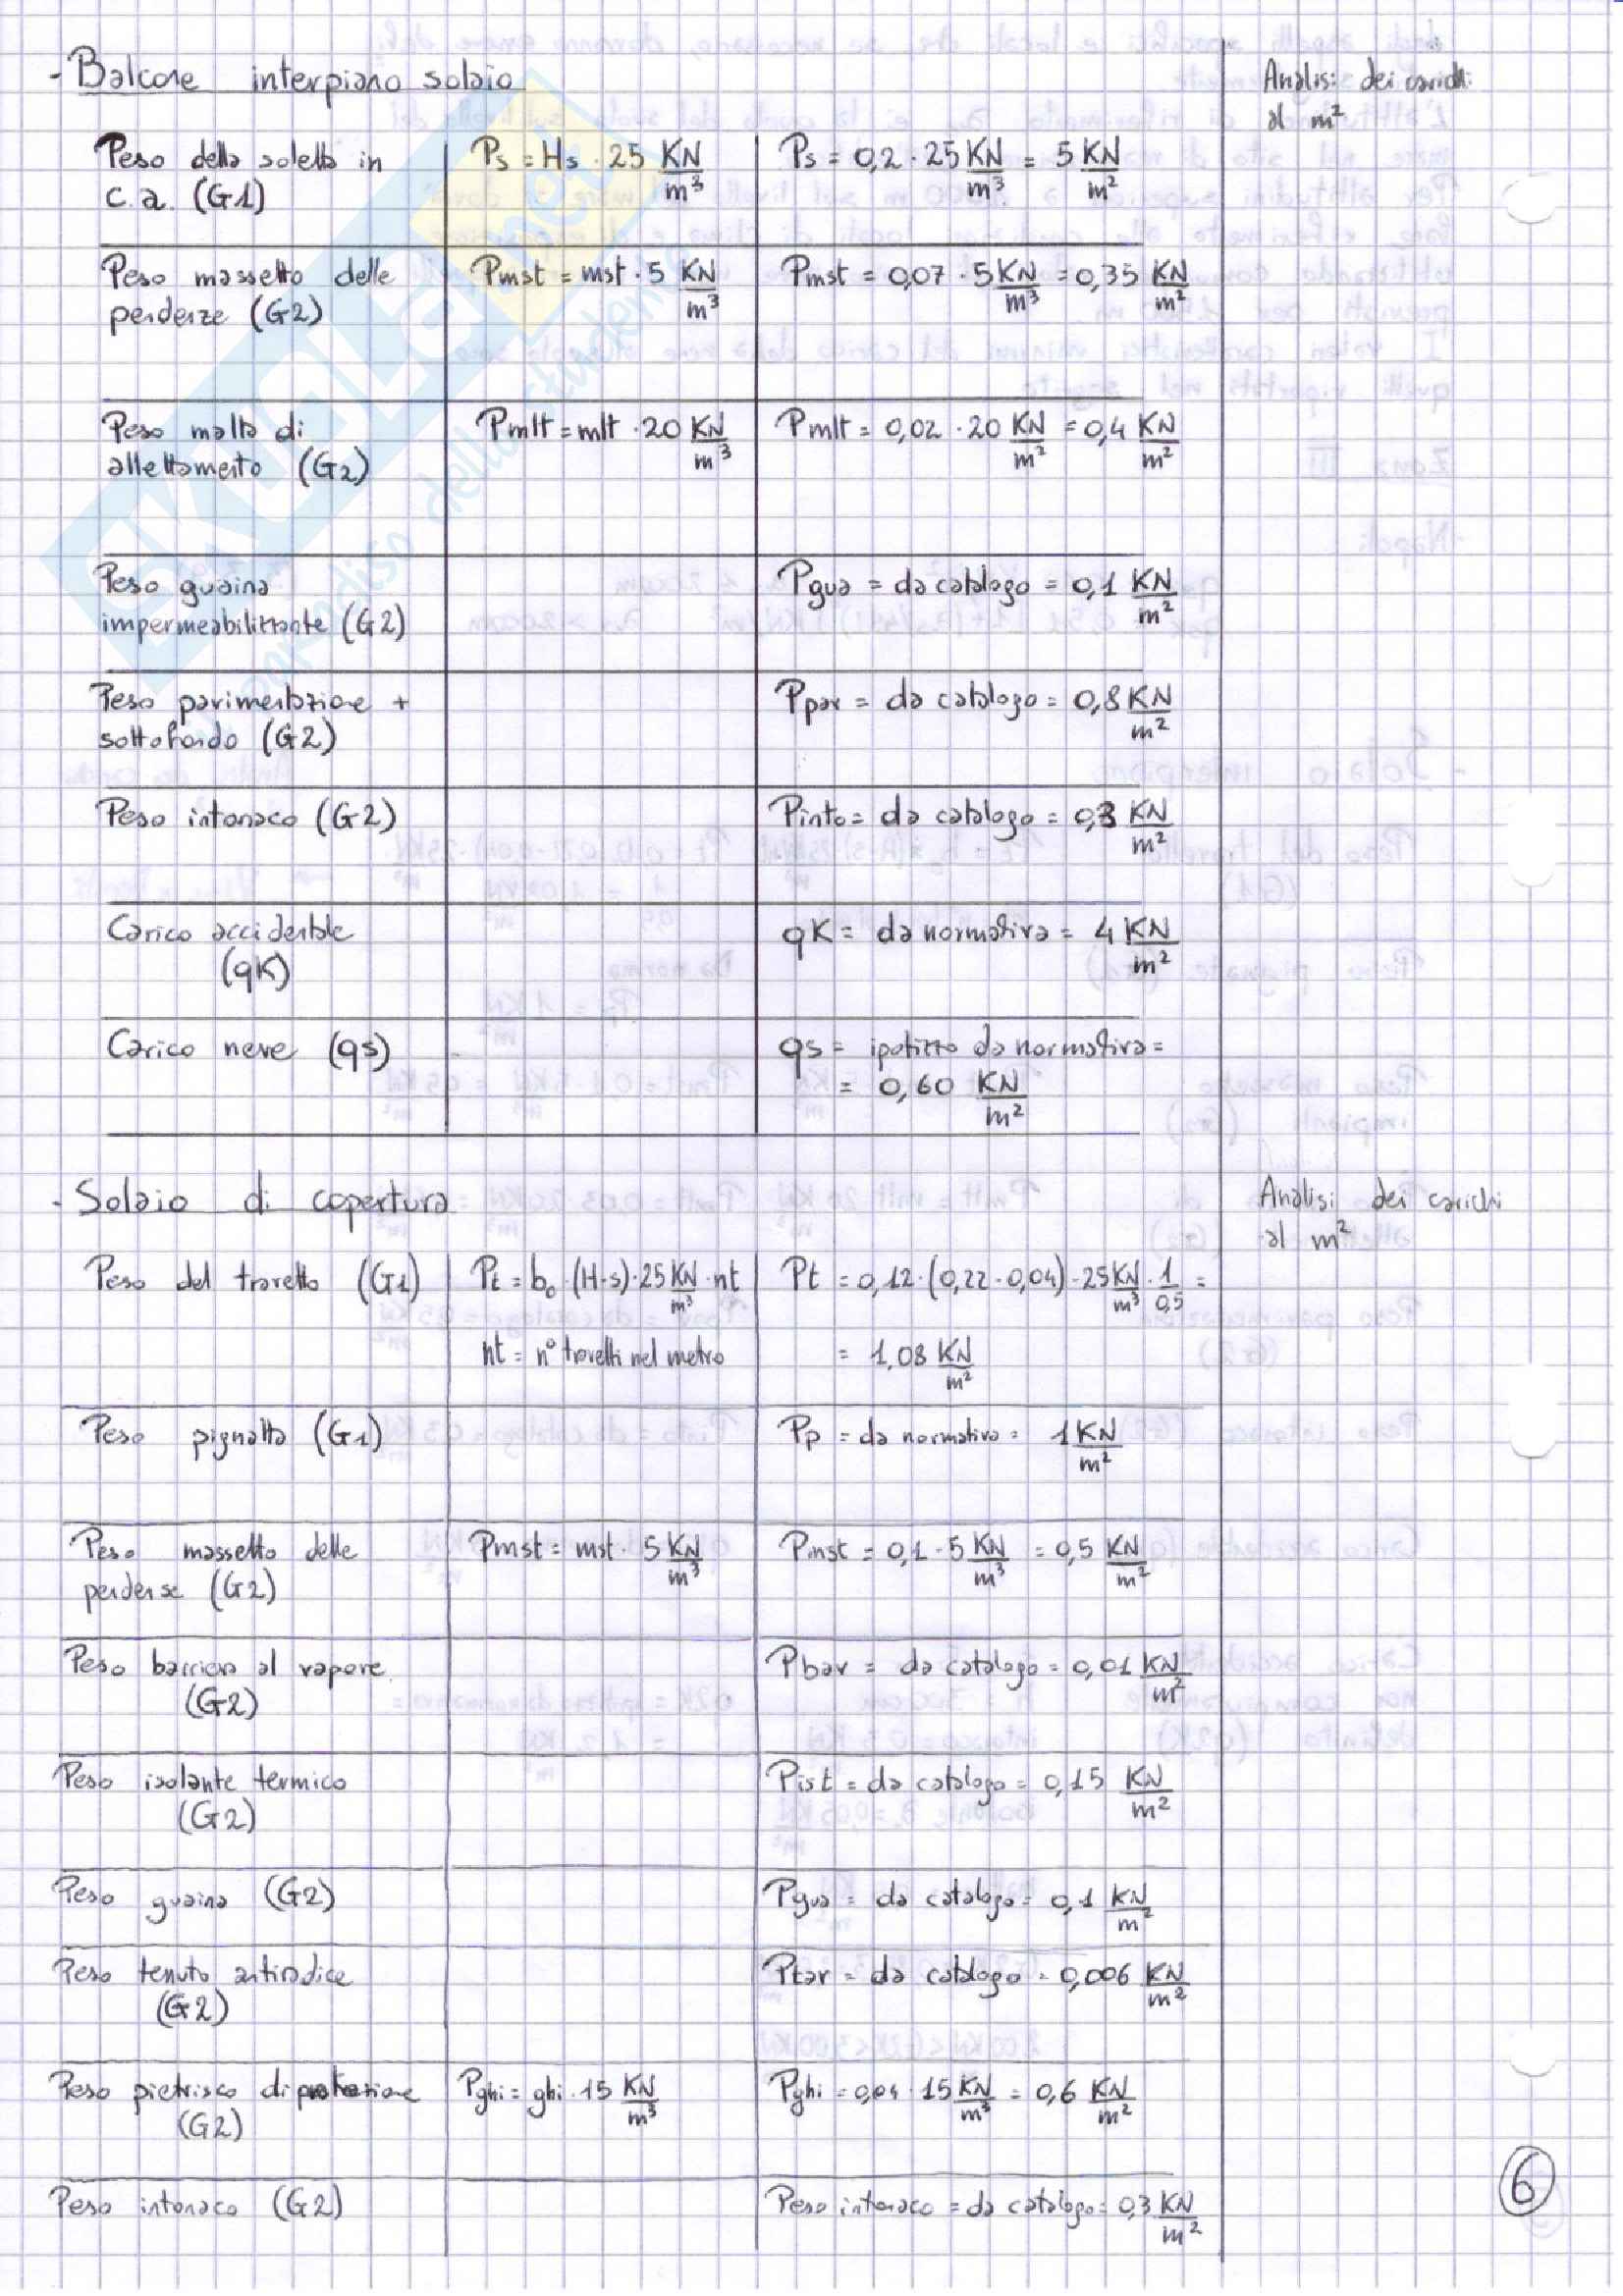 - Balcone interpiano solaio
Analisi dei carichi
al m²
Peso della soletta in
c.a. (G1)
Ps = Hs · 25 KN/m³
Ps = 0,2 · 25 KN/m³ = 5 KN/m²
Peso massetto delle
pendenze (G2)
Pmst = mst · 5 KN/m³
Pmst = 0,07 · 5 KN/m³ = 0,35 KN/m²
Peso malta di
allettamento (G2)
Pmlt = mlt · 20 KN/m³
Pmlt = 0,02 · 20 KN/m² = 0,4 KN/m²
Peso guaina
impermeabilizzante (G2)
Pgua = da catalogo = 0,1 KN/m²
Peso pavimentazione +
sottofondo (G2)
Ppav = da catalogo = 0,8 KN/m²
Peso intonaco (G2)
Pinto = da catalogo = 0,3 KN/m²
Carico accidentale
(qK)
qK = da normativa = 4 KN/m²
Carico neve (qs)
qs = ipotizzo da normativa =
= 0,60 KN/m²
- Solaio di copertura
Analisi dei carichi
al m²
Peso del travetto (G1)
Pt = b₀ · (H-s) · 25 KN/m³ · nt
nt = n° travetti nel metro
Pt = 0,12 · (0,22 - 0,04) · 25 KN/m³ · 1/0,5 =
= 1,08 KN/m²
Peso pignatta (G1)
Pp = da normativa = 1 KN/m²
Peso massetto delle
pendense (G2)
Pmst = mst · 5 KN/m³
Pmst = 0,1 · 5 KN/m³ = 0,5 KN/m²
Peso barriera al vapore
(G2)
Pbav = da catalogo = 0,01 KN/m²
Peso isolante termico
(G2)
Pist = da catalogo = 0,15 KN/m²
Peso guaina (G2)
Pgua = da catalogo = 0,1 KN/m²
Peso tenuto antiradice
(G2)
Ptar = da catalogo = 0,006 KN/m²
Peso pietrisco di protezione
(G2)
Pghi = ghi · 15 KN/m³
Pghi = 0,04 · 15 KN/m³ = 0,6 KN/m²
Peso intonaco (G2)
Peso intonaco = da catalogo = 0,3 KN/m²
6
SKUOLA.net
il paradiso dello studente